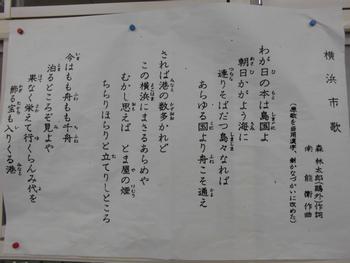 横浜市歌
森 林太郎(鴎外)作詞
南 能衛 作曲
(原歌を当用漢字、新かなづかいに改めた)
わが日の本は島国よ
朝日かがよう海に
連りそばだつ島々なれば
あらゆる国より舟こそ通え
されば港の数多かれど
この横浜にまさるあらめや
むかし思えば とま屋の煙
ちらりほらりと立てりしところ
今はもも舟もも千舟
泊るところぞ見よや
果なく栄えて行くらんみ代を
飾る宝も入りくる港